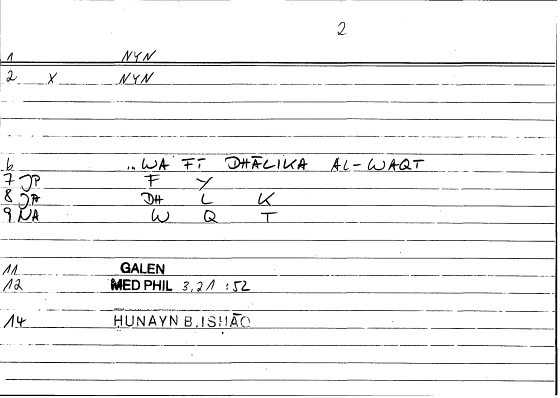 2
1 NYN
2 X NYN
6 ..WA FT DHĀLIKA AL-WAQT
7 JP F Y
8 JA DH L K
9 NA W Q T
11 GALEN
12 MED PHIL 3,21 :52
14 HUNAYN B.ISHĀQ